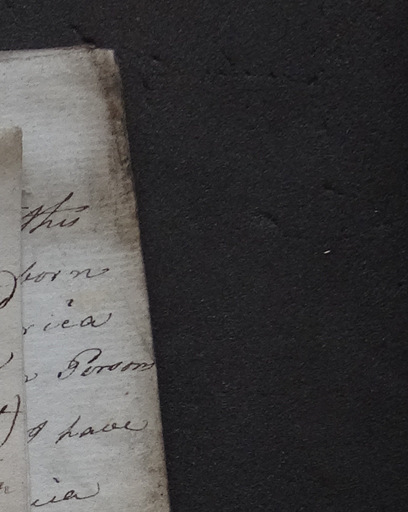 this
born
rica
Persons
I have
ica